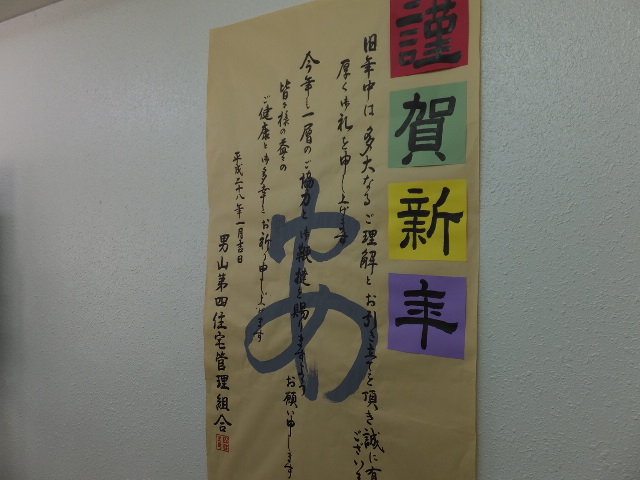 謹賀新年
旧年中は多大なるご理解とお引き立てを頂き誠に有
ございま
厚く御礼を申し上げます
今年も一層のご協力と御鞭撻を賜りますよう
お願い申します
皆々様の益々の
ご健康と御多幸をお祈り申し上げます
平成二十八年一月吉日
男山第四住宅管理組合